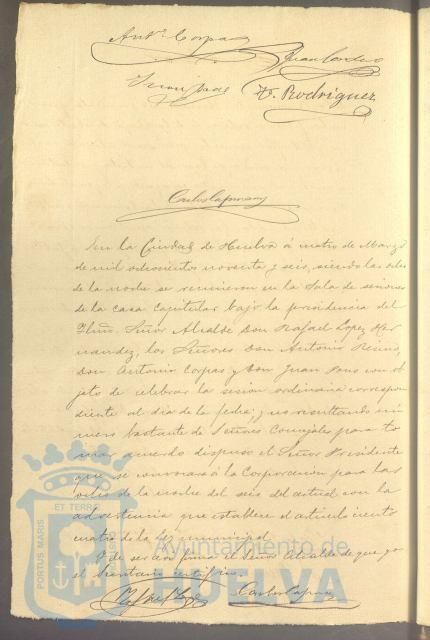 Antº Corpas
Juan Cordero
F. Rodriguez
Carlos Capmany
En la Ciudad de Huelva á cuatro de Marzo
de mil ochocientos noventa y seis, siendo las ocho
de la noche se reunieron en la Sala de sesiones
de la casa Capitular bajo la presidencia del
Yltmo. Señor Alcalde Don Rafael Lopez Her
nandez, los Señores Don Antonio
Don Antonio Corpas y Don Juan con ob
jeto de celebrar la sesion ordinaria correspon
diente al dia de la fecha; y no resultando nú
mero bastante de Señores Concejales para to
mar acuerdo dispuso el Señor Presidente
que se convocará á la Corporacion para las
ocho de la noche del seis del actual con la
advertencia que establece el articulo ciento
cuatro de la ley municipal.
Y de ser así firma el Señor Alcalde de que yo
el Secretario certifico.
Carlos Capmany
PORTUS MARIS
ET TERRE
Ayuntamiento de
HUELVA